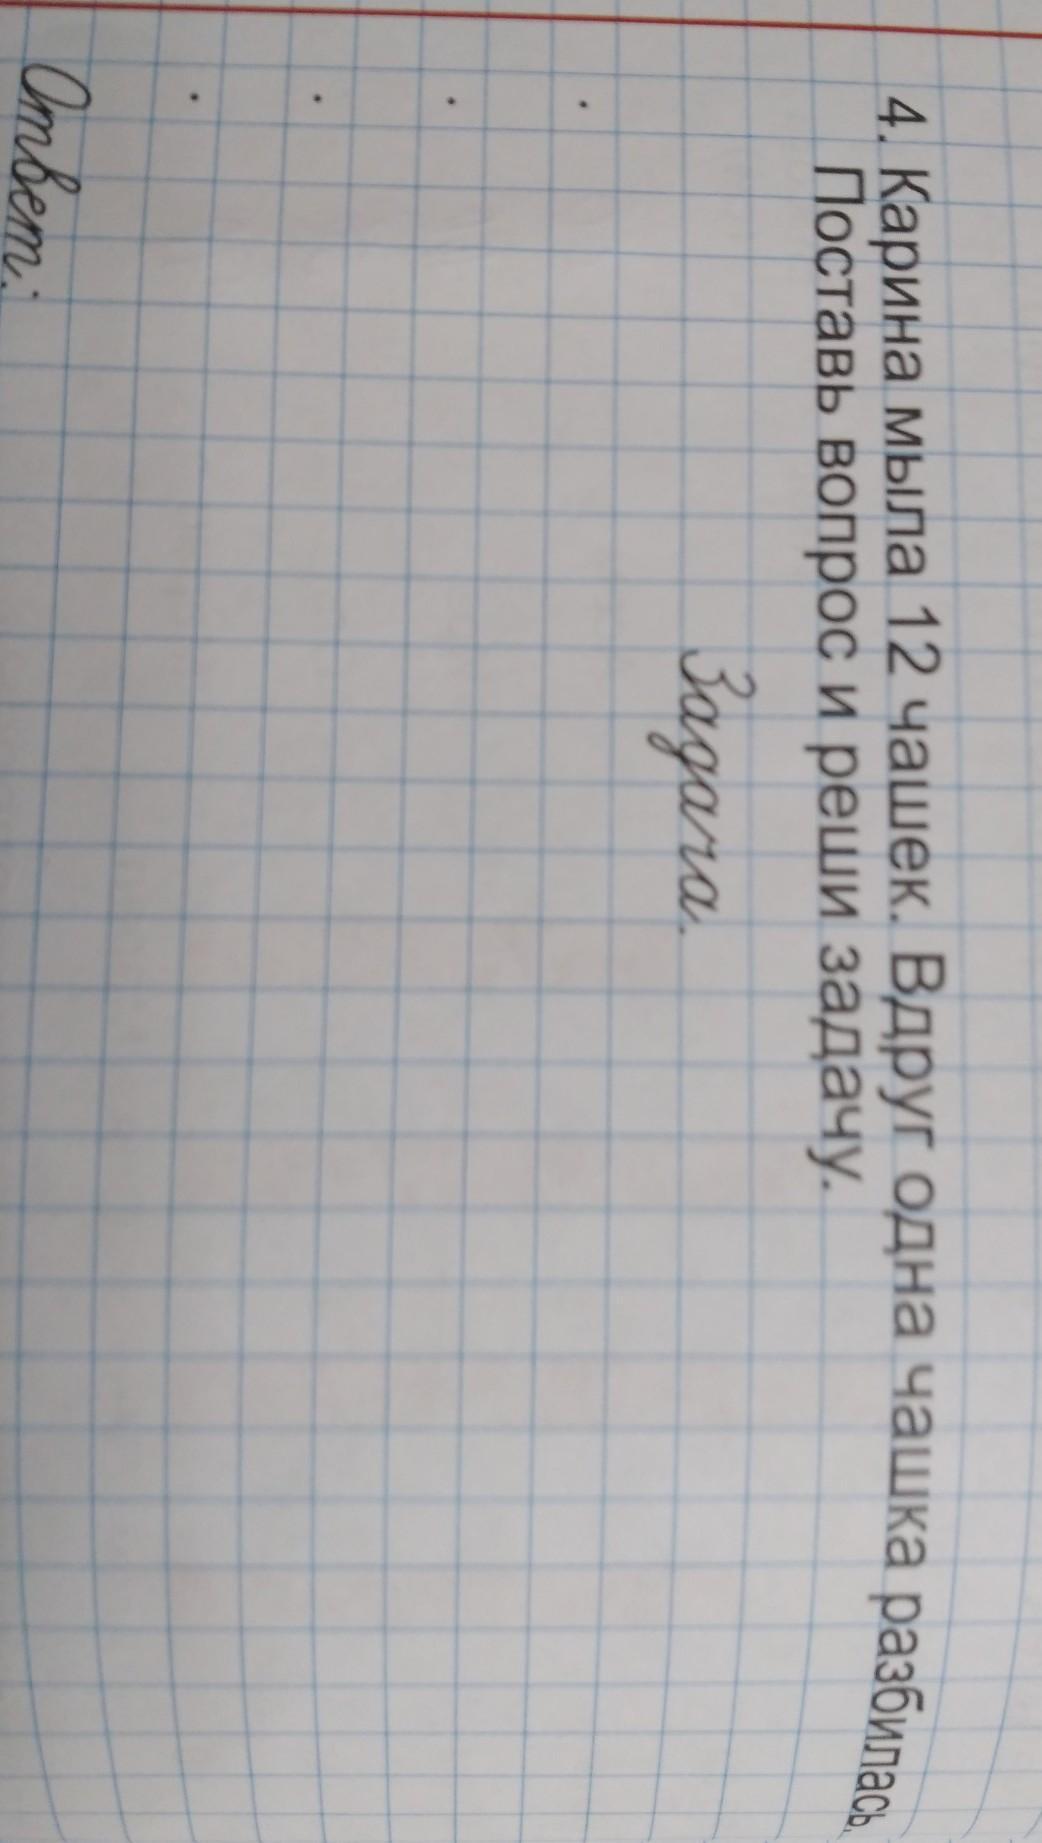 4. Карина мыла 12 чашек. Вдруг одна чашка разбилась.
Поставь вопрос и реши задачу.
Задача.
Ответ: